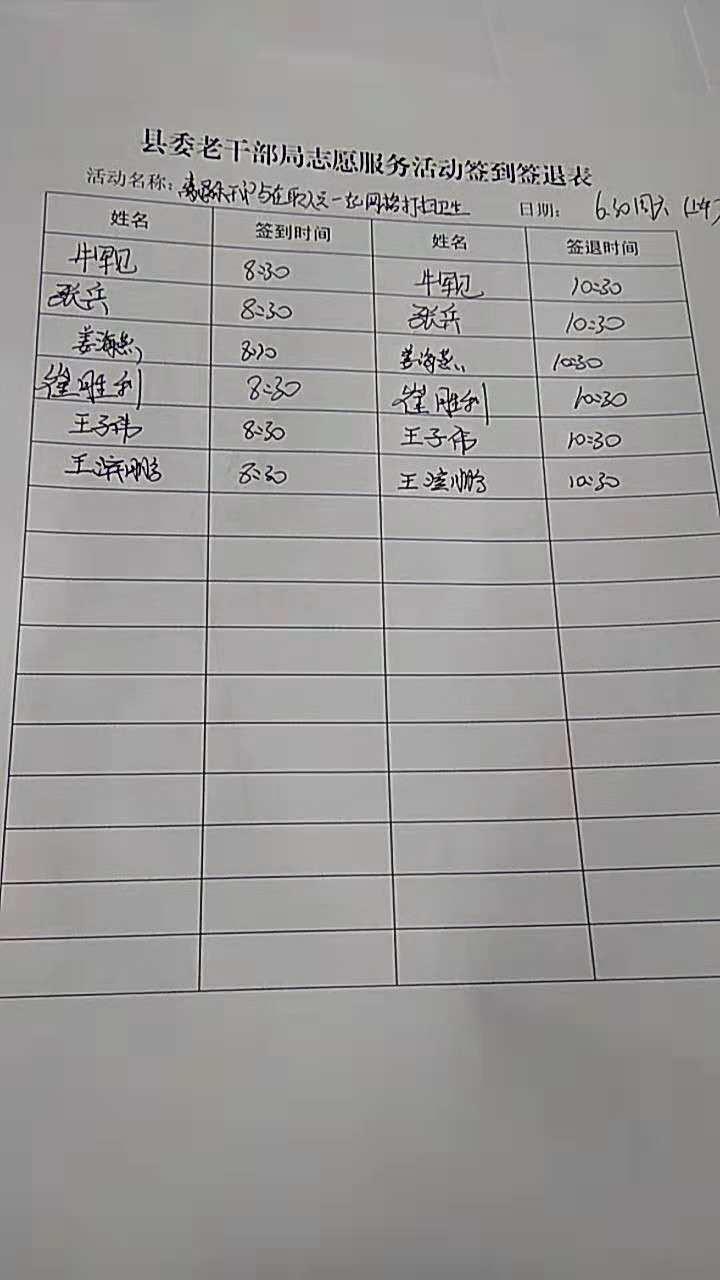 县委老干部局志愿服务活动签到签退表
活动名称：离退休干部与在职人员一起网格打扫卫生 日期： 6.30周六（上午）
姓名 签到时间 姓名 签退时间
8:30 10:30
张兵 8:30 张兵 10:30
姜海燕 8:30 姜海燕 10:30
崔胜利 8:30 崔胜利 10:30
王子祎 8:30 王子祎 10:30
王 鹏 8:30 王 鹏 10:30